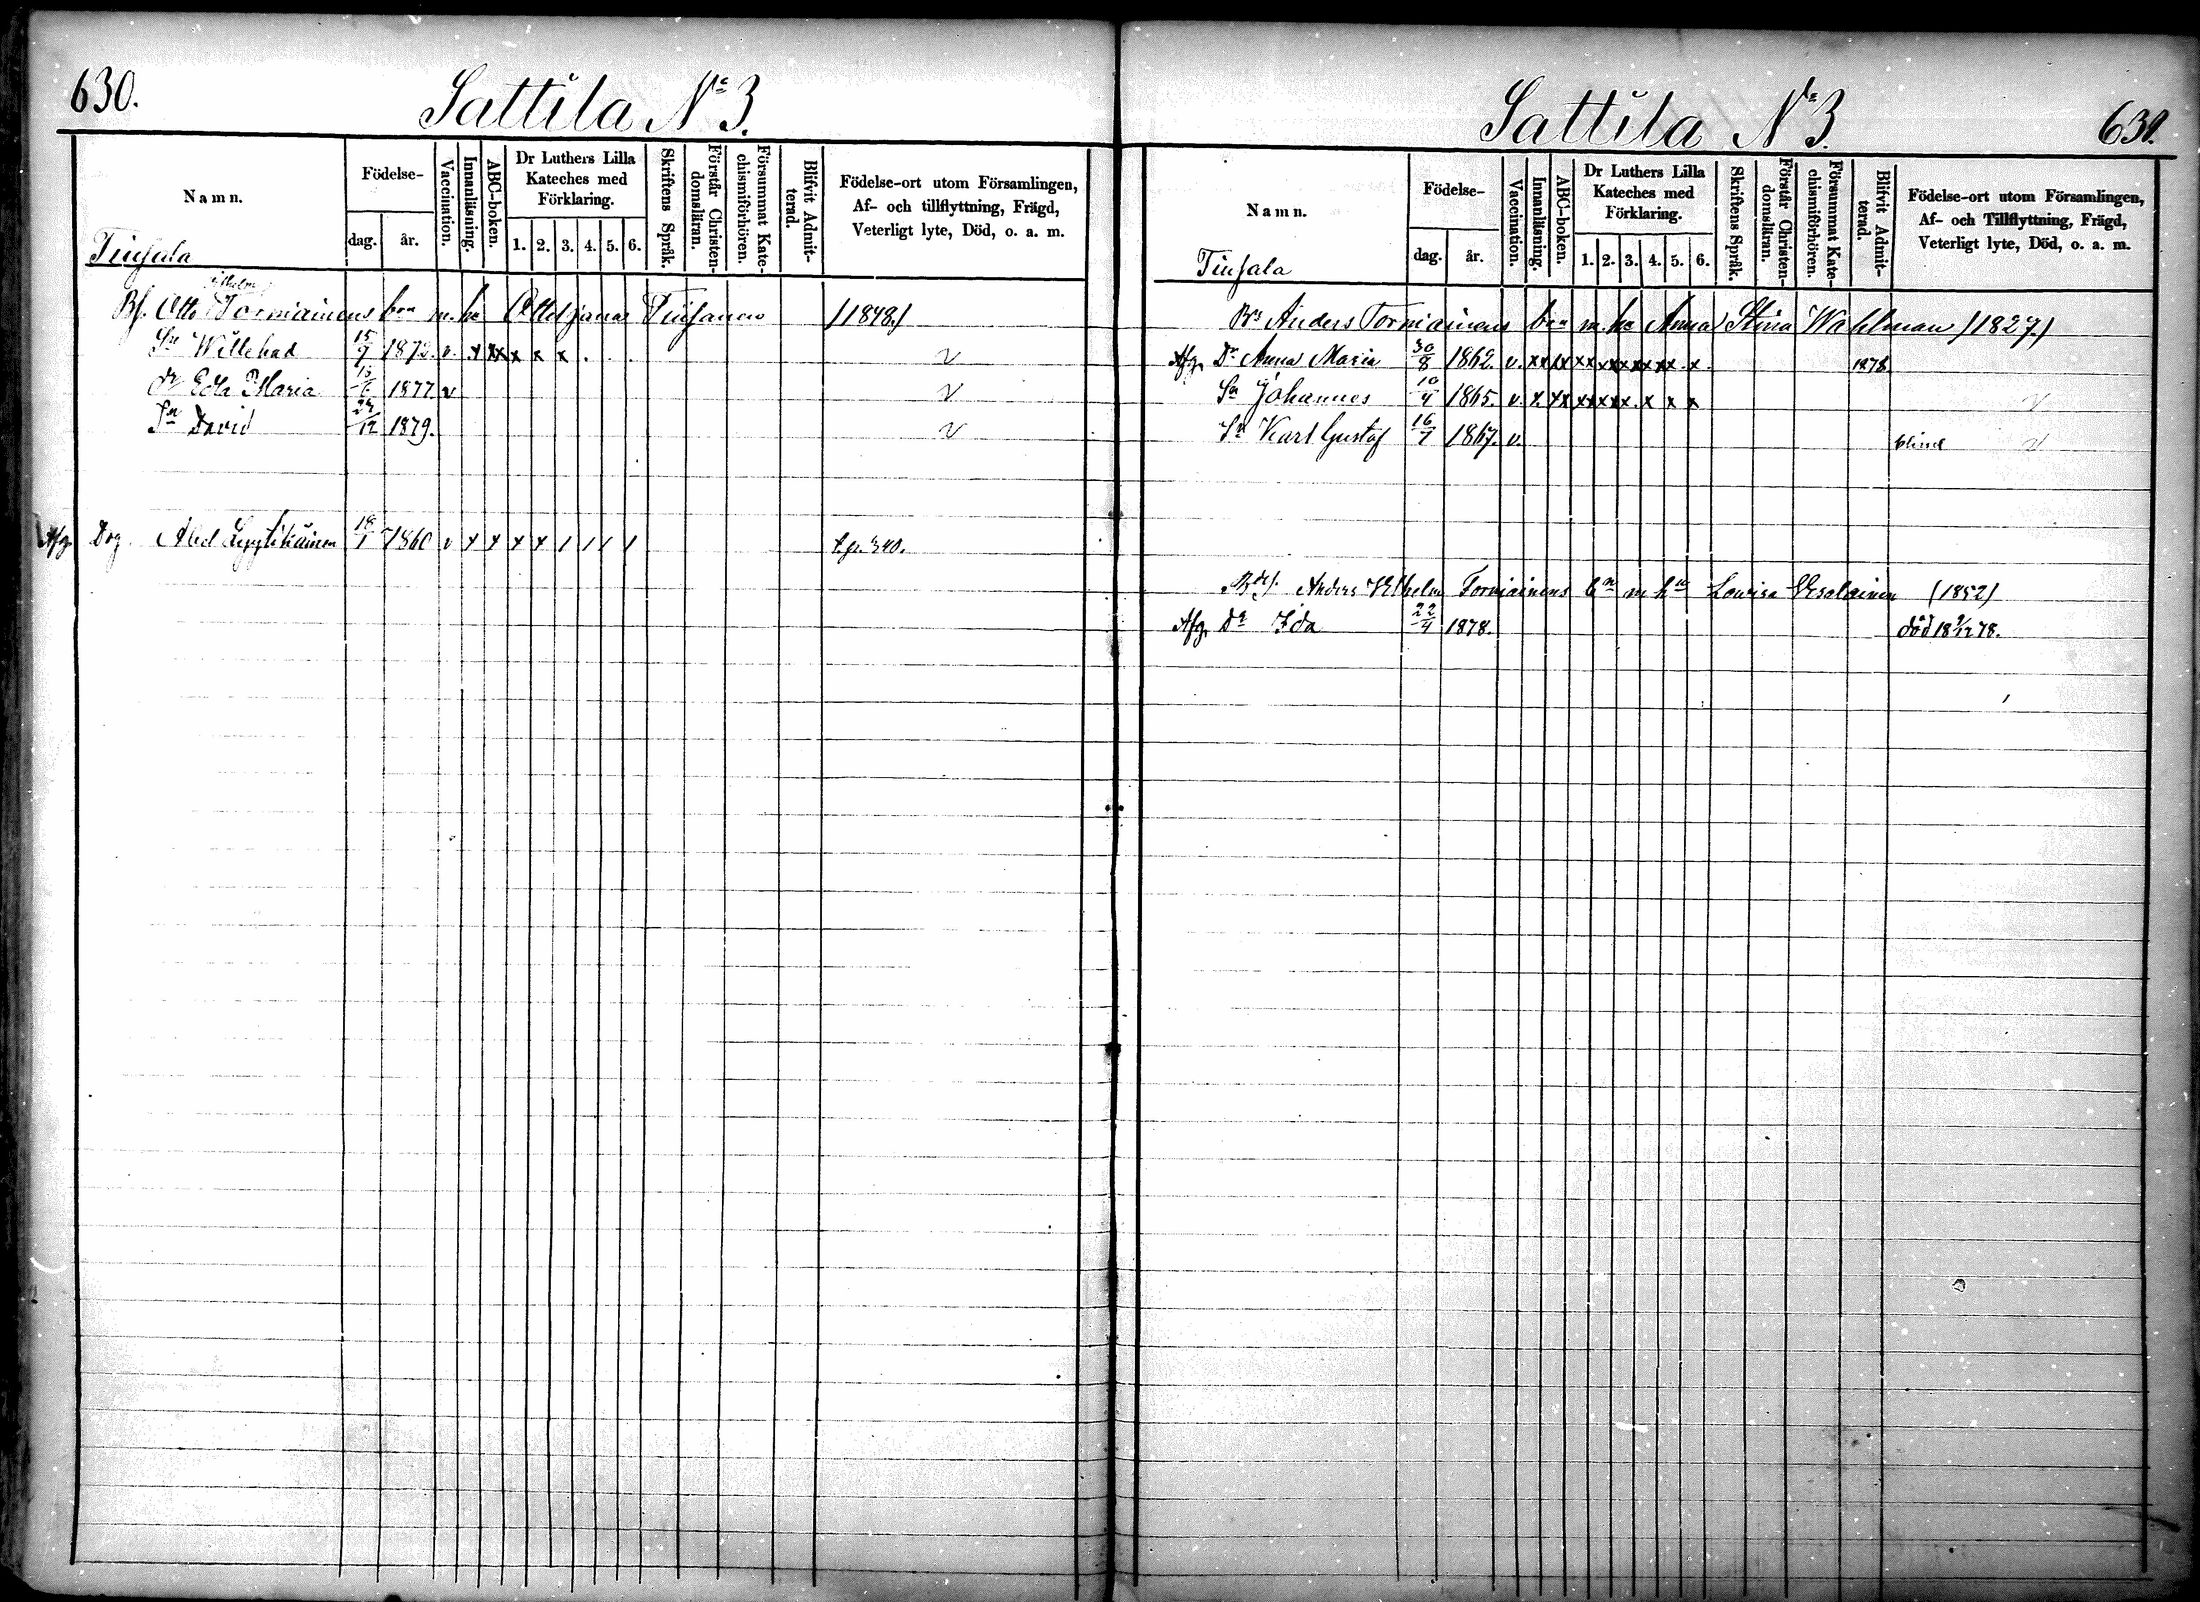 630.
Sattila No 3.
Namn.
Födelse-
dag.
år.
Vaccination.
Innanläsning.
ABC-boken.
Dr Luthers Lilla Kateches med Förklaring.
1. 2. 3. 4. 5. 6.
Skriftens Språk.
Förstår Christendomsläran.
Försummat Katechismiförhören.
Blifvit Admitterad.
Födelse-ort utom Församlingen, Af- och tillflyttning, Frägd, Veterligt lyte, Död, o. a. m.
Tiusala
Wilhelm
Bf. Otto Torniainens bn m. ha Ottiljana Tiusanen (1848)
Sn Willehad 15/9 1872. v. x xx x x x . . . v
dr Eda Maria 13/6 1877 v v
Sn David 27/12 1879. v
Afg. Drg Abel Lyytikäinen 18/1 1860 v x x x x / / / / t.p. 340.
631.
Sattila No 3.
Namn.
Födelse-
dag.
år.
Vaccination.
Innanläsning.
ABC-boken.
Dr Luthers Lilla Kateches med Förklaring.
1. 2. 3. 4. 5. 6.
Skriftens Språk.
Förstår Christendomsläran.
Försummat Katechismiförhören.
Blifvit Admitterad.
Födelse-ort utom Församlingen, Af- och Tillflyttning, Frägd, Veterligt lyte, Död, o. a. m.
Tiusala
Anders Torniainens bn m. ha Anna Stina Wahlman (1827)
Afg. Dr Anna Maria 30/8 1862. v. xx xx xx xx xx xx xx . x. 1878
Sn Johannes 10/4 1865. v. x. xx xx xx x. x x x v
Sn Karl Gustaf 16/7 1867. v. blind v
Anders Wilhelm Torniainens bn m hu Lovisa Wesalainen (1852)
Afg. Dr Ida 22/4 1878. död 18 9/12 78.